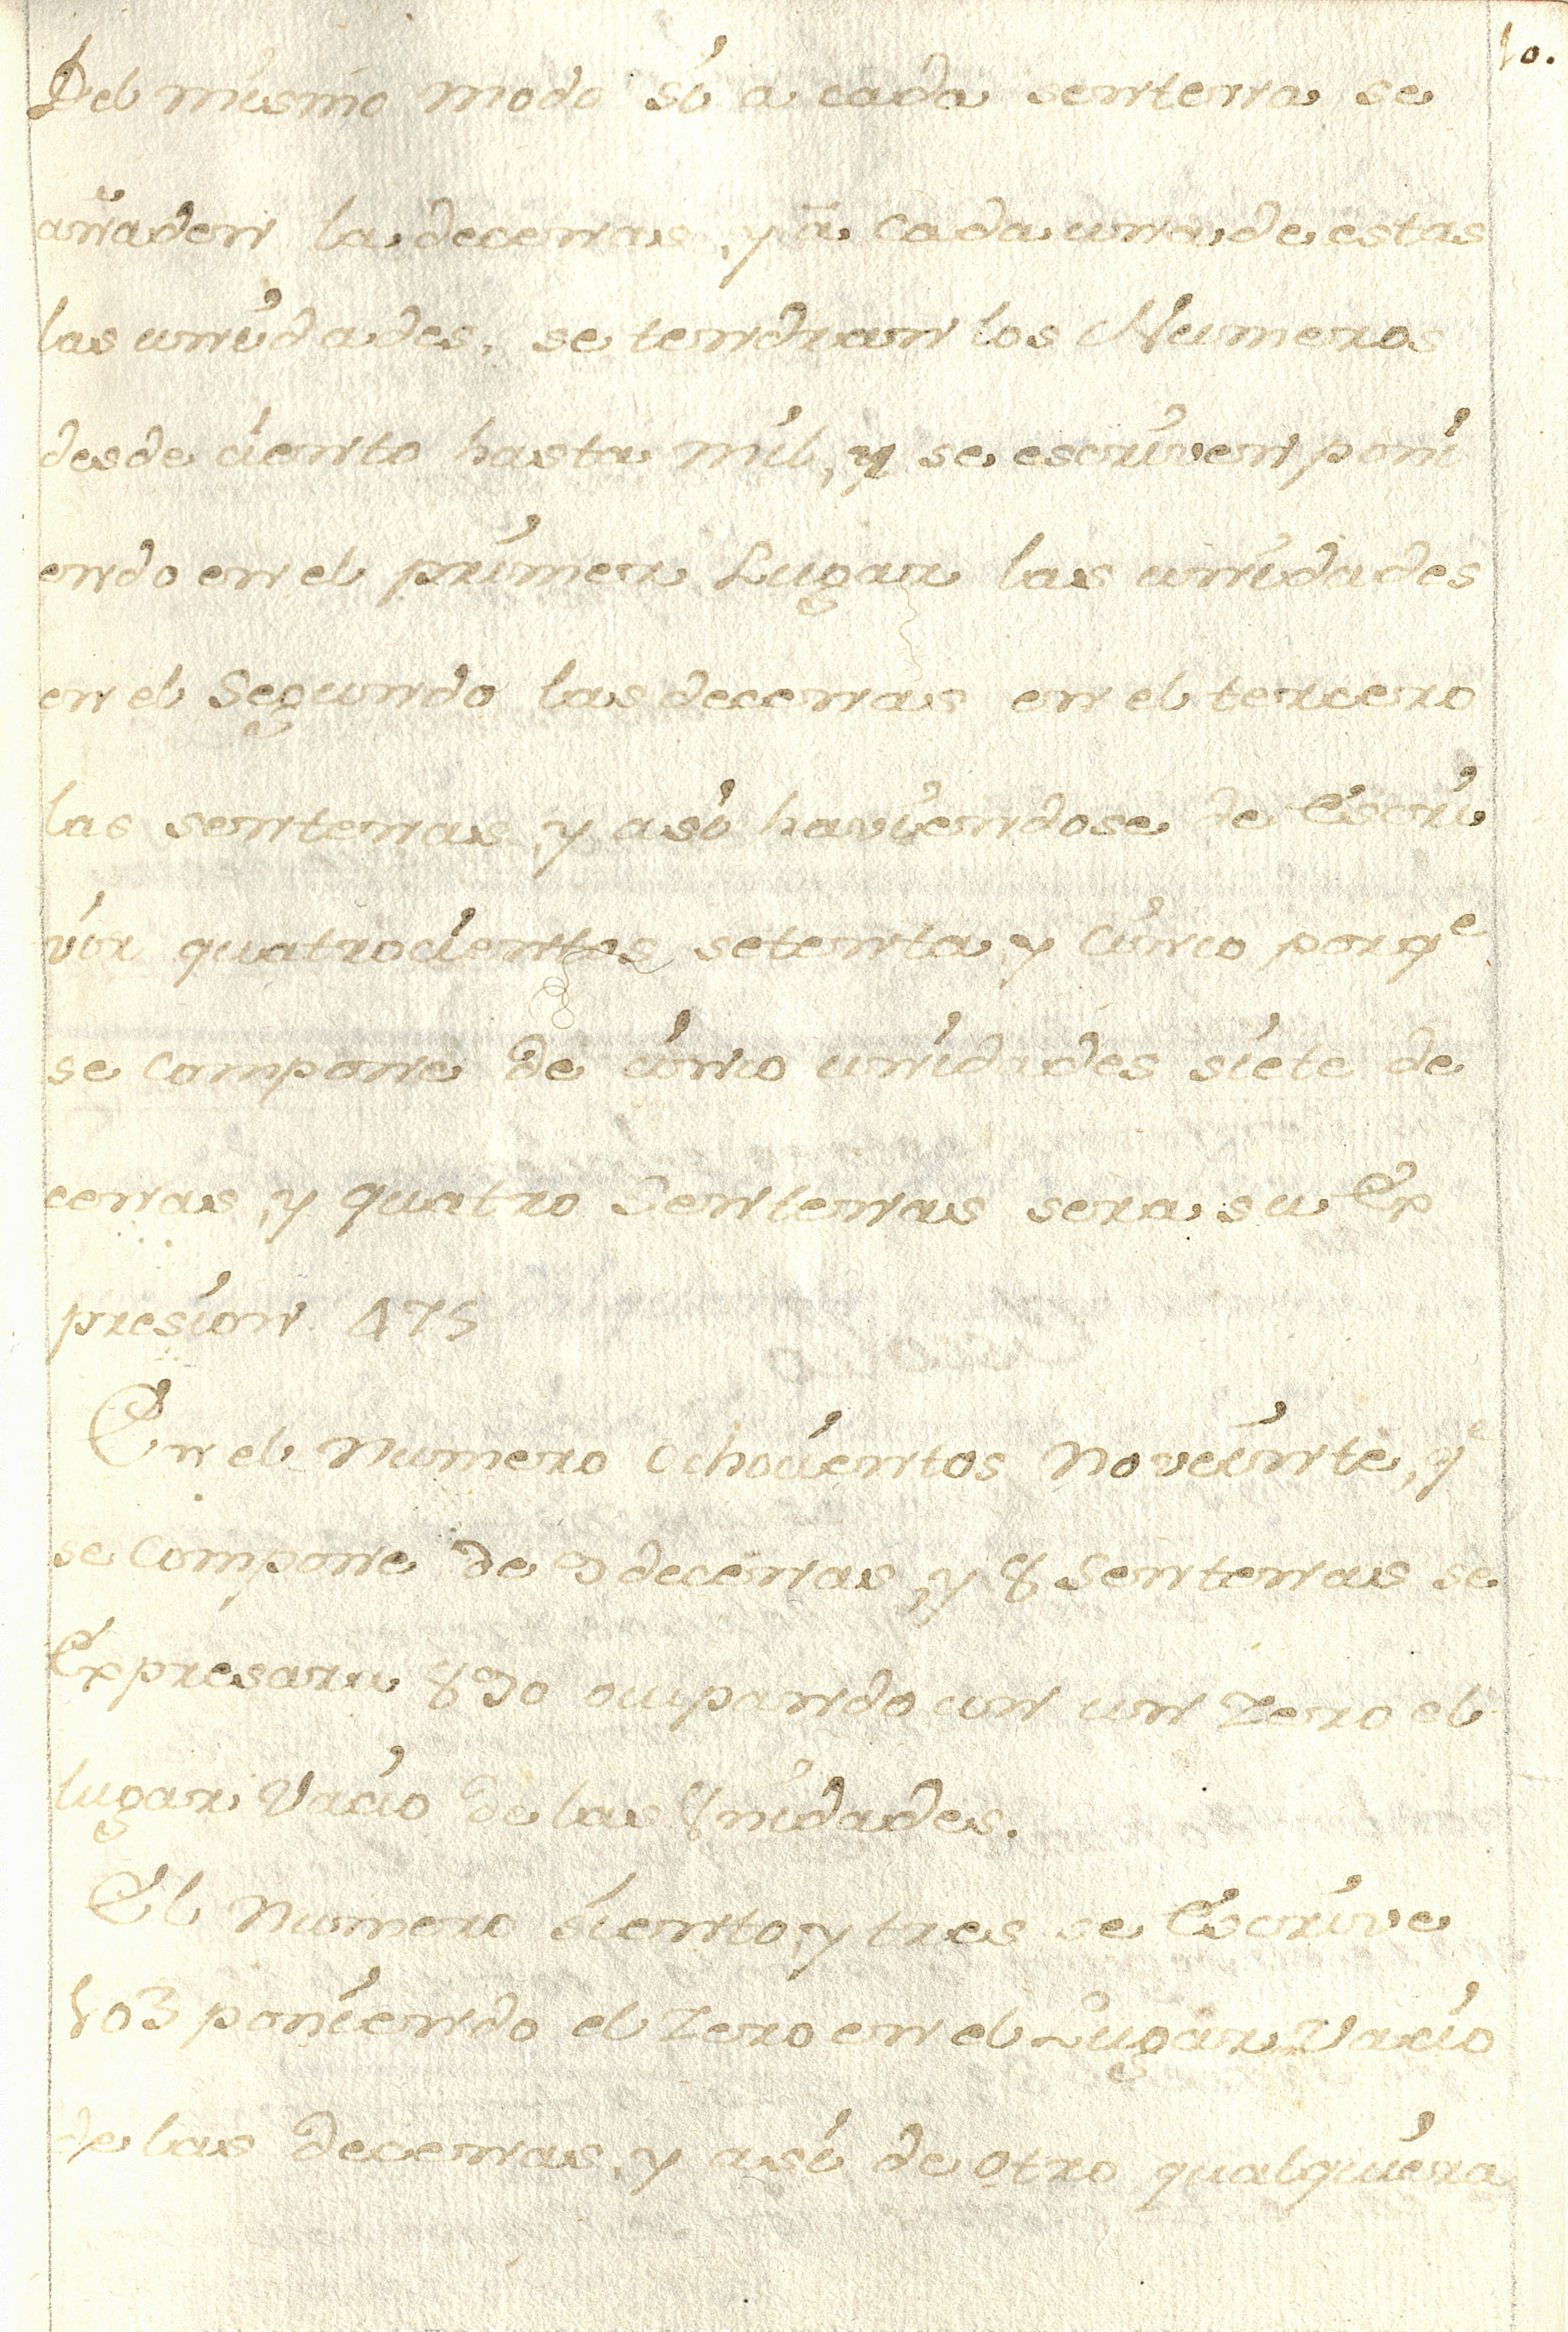 10.
Del mismo modo si a cada sentena se
añaden la decenas, y a cada una de estas
las unidades, se tendran los Numeros
desde ciento hasta mil, y se escriven poni
endo en el primer Lugar las unidades
en el Segundo las decenas en el tercero
las sentenas, y asi haviendose de Escri
vir quatrocientos setenta y cinco porqe
se compone de cinco unidades siete de
cenas, y quatro Sentenas sera su Ex
presion 475
En el Numero ochocientos noveinte, qe
se compone de 9 decenas, y 8 Sentenas se
Expresara 890 ocupando con un Zero el
lugar Vacio de las Unidades.
El Numero siento, y tres se Escrive
103 poniendo el Zero en el Lugar Vacio
de las decenas, y asi de otro qualquiera